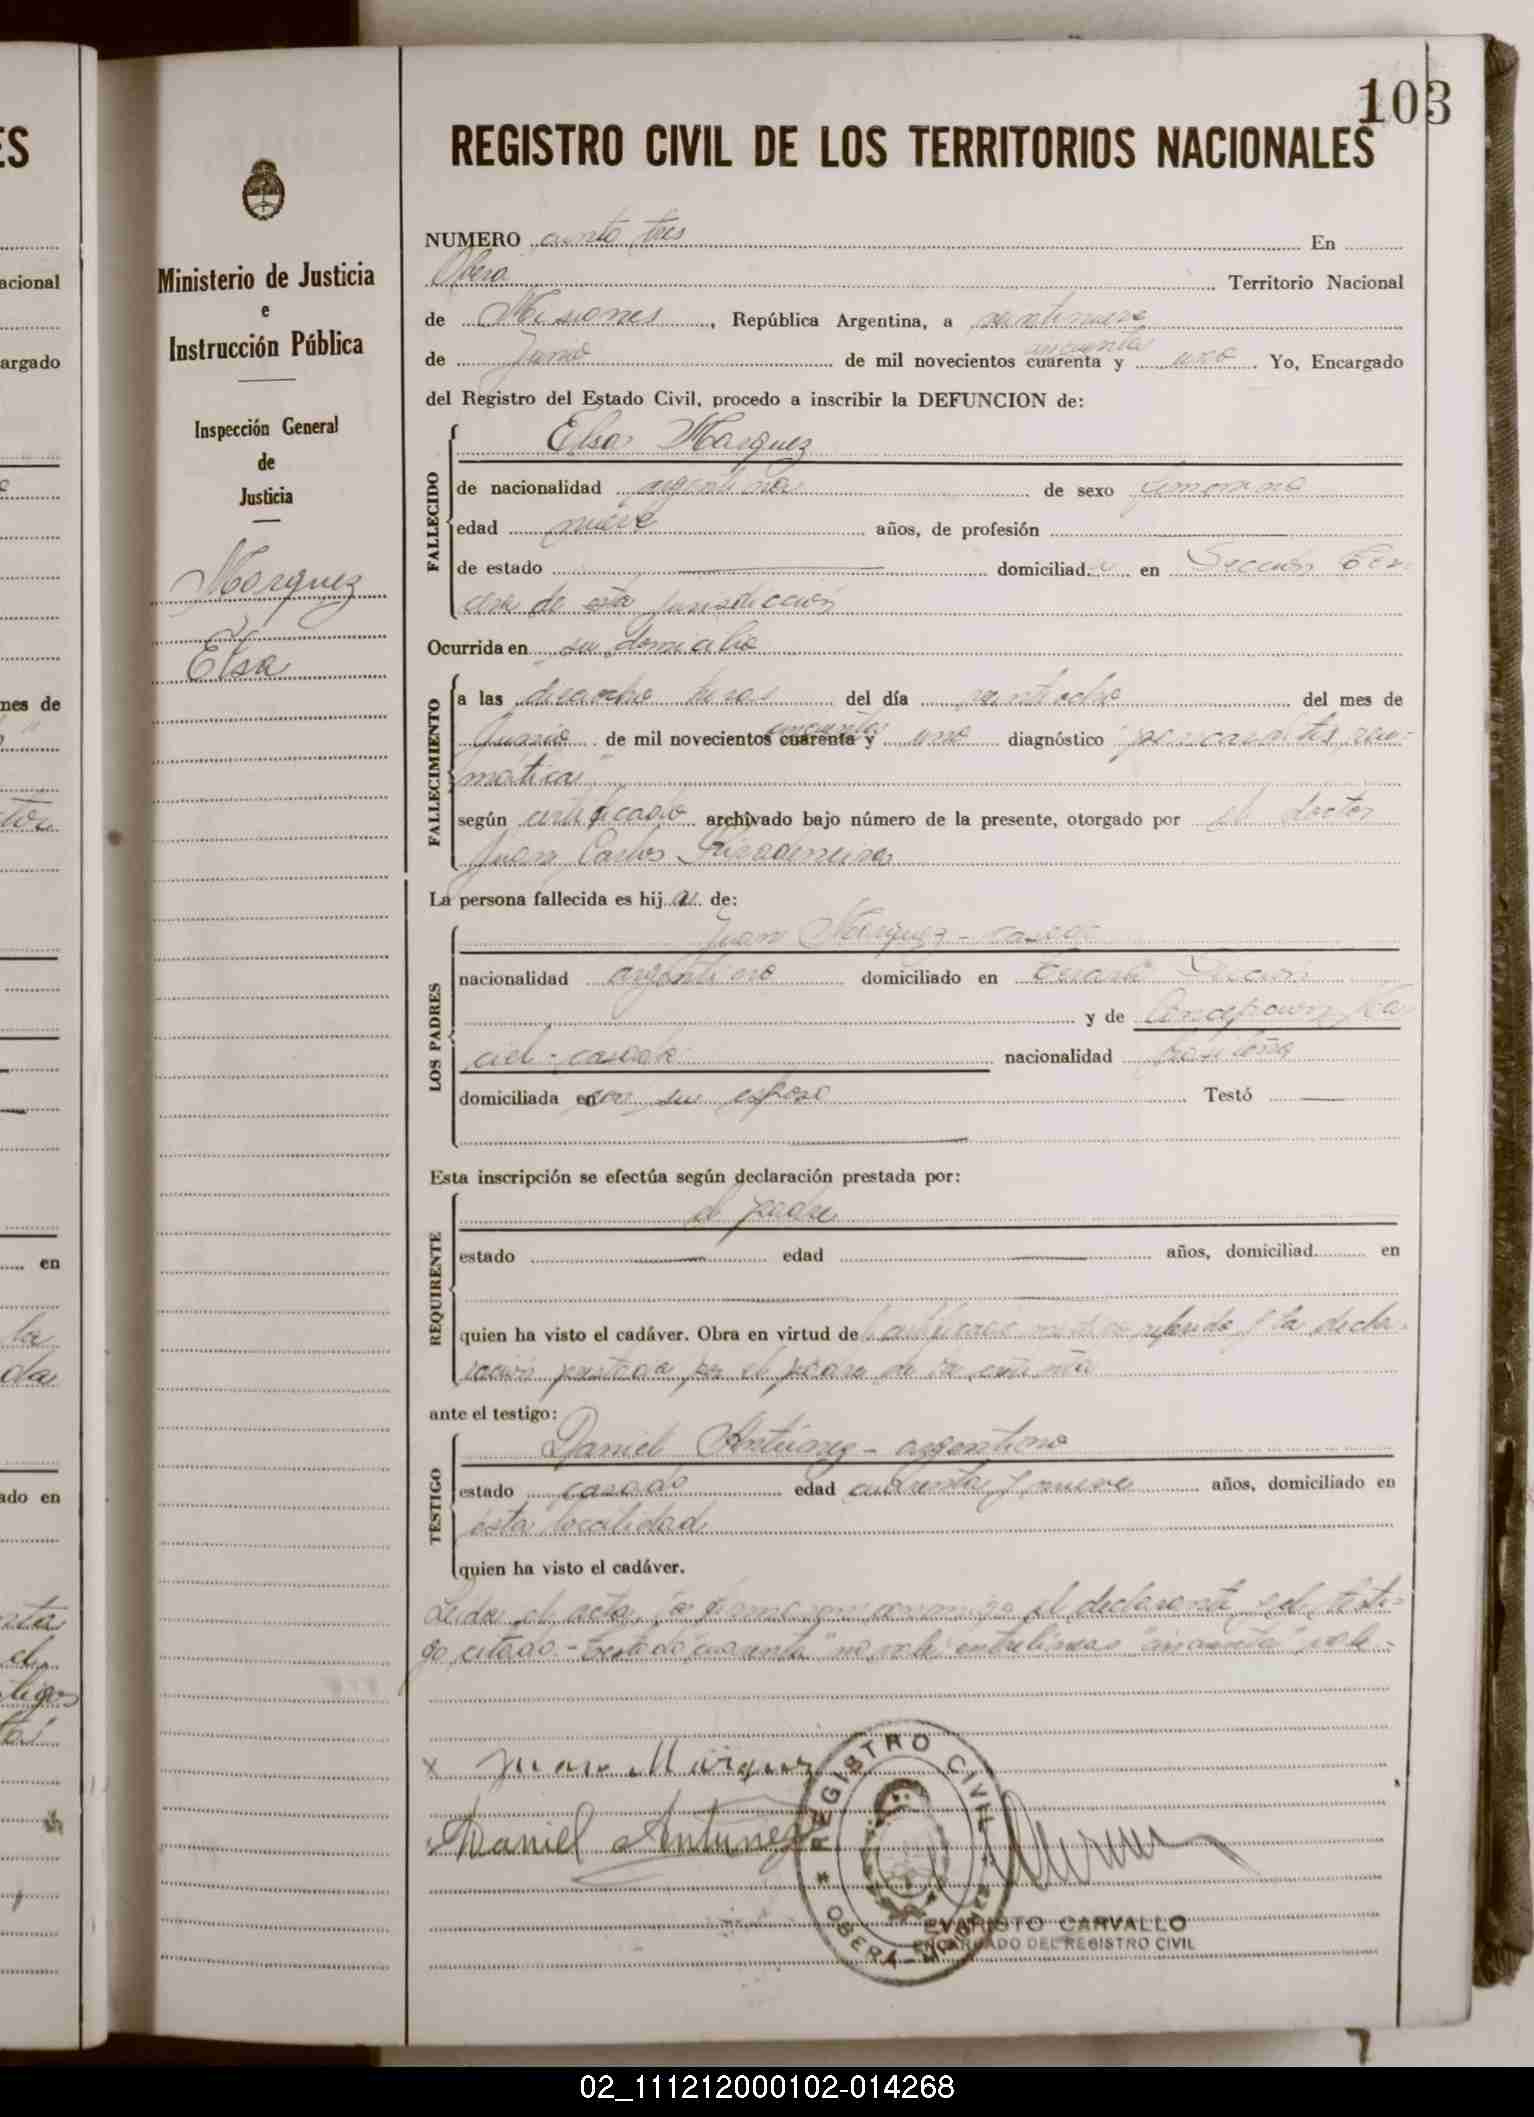 103
REGISTRO CIVIL DE LOS TERRITORIOS NACIONALES
Ministerio de Justicia
e
Instrucción Pública
Inspección General
de
Justicia
Marquez
Elsa
NUMERO ciento tres En
Oberá Territorio Nacional
de Misiones, República Argentina, a veintinueve
cincuenta
de Junio de mil novecientos cuarenta y uno Yo, Encargado
del Registro del Estado Civil, procedo a inscribir la DEFUNCION de:
FALLECIDO
Elsa Marquez
de nacionalidad argentina de sexo femenino
edad nueve años, de profesión
de estado domiciliad a en Sección Ter-
cera de esta jurisdicción
Ocurrida en su domicilio
FALLECIMIENTO
a las dieciocho horas del día veintiocho del mes de
cincuenta
Junio de mil novecientos cuarenta y uno diagnóstico "pericarditis reu-
matica"
según certificado archivado bajo número de la presente, otorgado por el doctor
Juan Carlos
La persona fallecida es hij a de:
LOS PADRES
Juan Marquez - casado
nacionalidad argentino domiciliado en tercera Sección
y de Concepcion Ma-
ciel - casada nacionalidad brasileña
domiciliada en con su esposo Testó
Esta inscripción se efectúa según declaración prestada por:
REQUIRENTE
el padre
estado edad años, domiciliad en
quien ha visto el cadáver. Obra en virtud de certificado referido y la decla-
ración prestada por el padre de la extinta
ante el testigo:
TESTIGO
Daniel Antunez - argentino
estado casado edad cuarenta y nueve años, domiciliado en
esta localidad
quien ha visto el cadáver.
Leida el acta, la firma conmigo el declarante y el testi-
go citado - Testado "cuarenta" no vale entrelineas "cincuenta" vale -
x Juan Marquez
Daniel Antunez
REGISTRO CIVIL
OBERA - MISIONES
EVARISTO CARVALLO
ENCARGADO DEL REGISTRO CIVIL
02_111212000102-014268